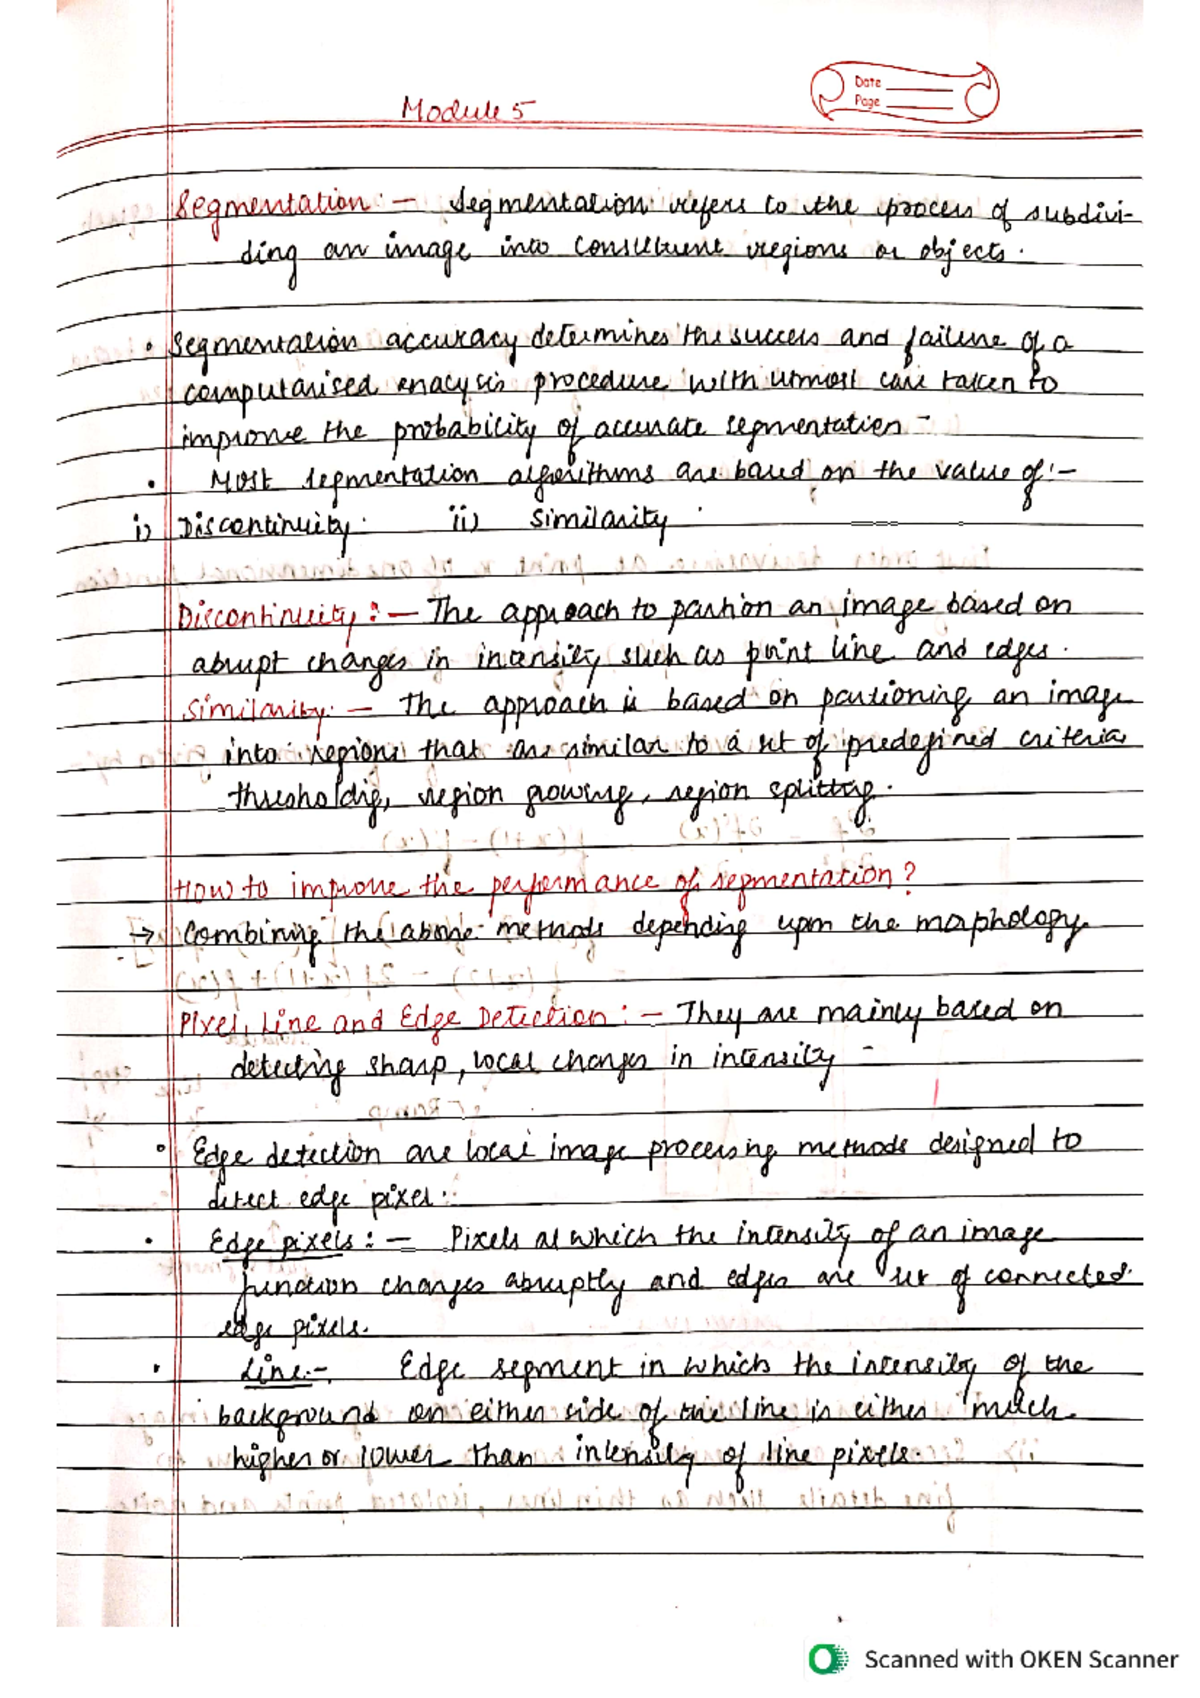 Date
Page
Module 5
Segmentation :- Segmentation refers to the process of subdivi-
ding an image into constituent regions or objects.
• Segmentation accuracy determines the success and failure of a
computarised anacysis procedure with utmost care taken to
improve the probability of accurate segmentation -
• Most segmentation algorithms are based on the value of :-
i) Discontinuity. ii) Similarity
Discontinuity :- The approach to partion an image based on
abrupt changes in intensity such as point line and edges.
Similarity :- The approach is based on partioning an image
into regions that are similar to a set of predefined criteria
thresholdig, region growing, region splitting.
How to improve the performance of segmentation?
→ Combining the above methods depending upon the morphology.
Pixel, Line and Edge Detection :- They are mainly based on
detecting sharp, local changes in intensity -
• Edge detection are local image processing methods designed to
detect edge pixel.
• Edge pixels :- Pixels at which the intensity of an image
function changes abruptly and edges are set of connected
edge pixels.
• Line :- Edge segment in which the intensity of the
background on either side of the line is either much
higher or lower than intensity of line pixels.
Scanned with OKEN Scanner